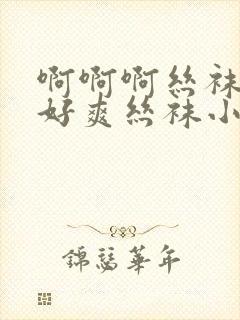 啊啊啊丝袜
好爽丝袜小
錦瑟華年